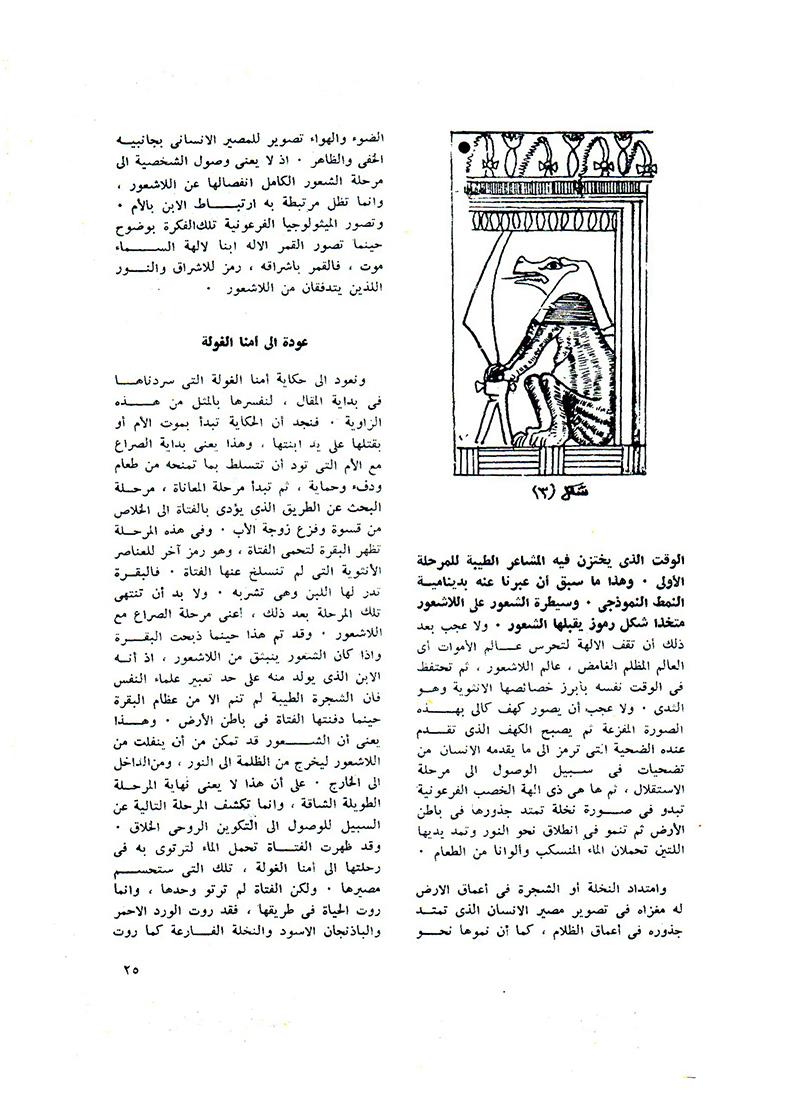 شكل (٣)
الوقت الذى يختزن فيه المشاعر الطيبة للمرحلة
الأولى ٠ وهذا ما سبق أن عبرنا عنه بدينامية
النمط النموذجى ٠ وسيطرة الشعور على اللاشعور
متخذا شكل رموز يقبلها الشعور ٠ ولا عجب بعد
ذلك أن تقف الالهة لتحرس عـــالم الأموات أى
العالم المظلم الغامض ، عالم اللاشعور ، ثم تحتفظ
فى الوقت نفسه بأبرز خصائصها الانثوية وهــو
الثدى ٠ ولا عجب أن يصور كهف كالى بهـــذه
الصورة المفزعة ثم يصبح الكهف الذى تقـــدم
عنده الضحية التى ترمز الى ما يقدمه الانسان من
تضحيات فى سبيل الوصول الى مرحلة
الاستقلال ، ثم ها هى ذى الهة الخصب الفرعونية
تبدو فى صـــورة نخلة تمتد جذورها فى باطن
الأرض ثم تنمو فى انطلاق نحو النور وتمد يديها
اللتين تحملان الماء المنسكب وألوانا من الطعام ٠
وامتداد النخلة أو الشجرة فى أعماق الارض
له مغزاه فى تصوير مصير الانسان الذى تمتـــد
جذوره فى أعماق الظلام ، كما أن نموها نحـــو
الضوء والهواء تصوير للمصير الانسانى بجانبيـــه
الخفى والظاهر ٠ اذ لا يعنى وصول الشخصية الى
مرحلة الشعور الكامل انفصالها عن اللاشعور ،
وانما تظل مرتبطة به ارتبـــاط الابن بالأم ٠
وتصور الميثولوجيا الفرعونية تلك الفكرة بوضوح
حينما تصور القمر الاله ابنا لالهة الســـماء
موت ، فالقمر باشراقه ، رمز للاشراق والنـــور
اللذين يتدفقان من اللاشعور ٠
عودة الى أمنا الغولة
ونعود الى حكاية أمنا الغولة التى سردناهـــا
فى بداية المقال ، لنفسرها بالمثل من هـــذه
الزاوية ٠ فنجد أن الحكاية تبدأ بموت الأم أو
بقتلها على يد ابنتها ، وهذا يعنى بداية الصراع
مع الأم التى تود أن تتسلط بما تمنحه من طعام
ودفء وحماية ، ثم تبدأ مرحلة المعاناة ، مرحـــلة
البحث عن الطريق الذى يؤدى بالفتاة الى الخلاص
من قسوة وفزع زوجة الأب ٠ وفى هذه المرحـــلة
تظهر البقرة لتحمى الفتاة ، وهو رمز آخر للعناصر
الأنثوية التى لم تنسلخ عنها الفتاة ٠ فالبقـــرة
تدر لها اللبن وهى تشربه ٠ ولا بد أن تنتهى
تلك المرحلة بعد ذلك ، أعنى مرحلة الصراع مع
اللاشعور ٠ وقد تم هذا حينما ذبحت البقـــرة
واذا كان الشعور ينبثق من اللاشعور ، اذ أنـــه
الابن الذى يولد منه على حد تعبير علماء النفس
فان الشجرة الطيبة لم تنم الا من عظام البقرة
حينما دفنتها الفتاة فى باطن الأرض ٠ وهـــذا
يعنى أن الشـــعور قد تمكن من أن ينفلت من
اللاشعور ليخرج من الظلمة الى النور ، ومن الداخل
الى الخارج ٠ على أن هذا لا يعنى نهاية المرحـــلة
الطويلة الشاقة ، وانما تكشف المرحلة التالية عن
السبيل للوصول الى التكوين الروحى الخلاق ٠
وقد ظهرت الفتـــاة تحمل الماء لترتوى به فى
رحلتها الى أمنا الغولة ، تلك التى ستحســـم
مصيرها ٠ ولكن الفتاة لم ترتو وحدها ، وانما
روت الحياة فى طريقها ، فقد روت الورد الاحمر
والباذنجان الاسود والنخلة الفـــارعة كما روت
٢٥